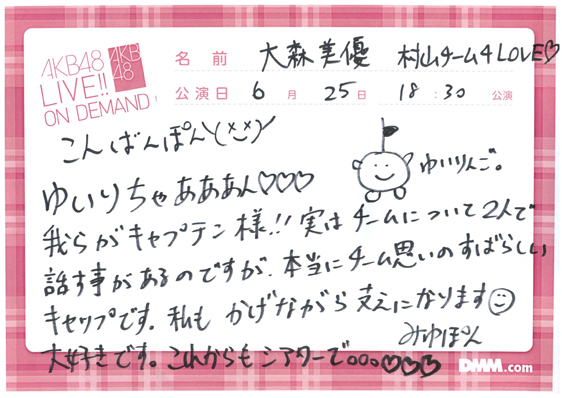 AKB48
LIVE!!
ON DEMAND
AKB
48
名前 大森美優 村山チーム4 LOVE♡
公演日 6月 25日 18:30 公演
こんばんぽん\(×_×)/
ゆいりんご。
ゆいりちゃあああん♡♡♡
我らがキャプテン様!!実はチームについて2人で
話す事があるのですが、本当にチーム思いのすばらしい
キャップです。私も かげながら支えになります☺
大好きです。これからもシアターで。。。♡♡♡
みゆぽん
DMM.com